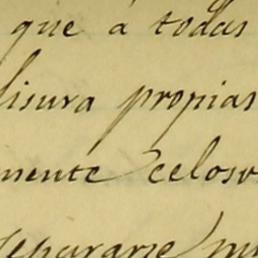 que á todas
lisura propias
mente celoso
separarse